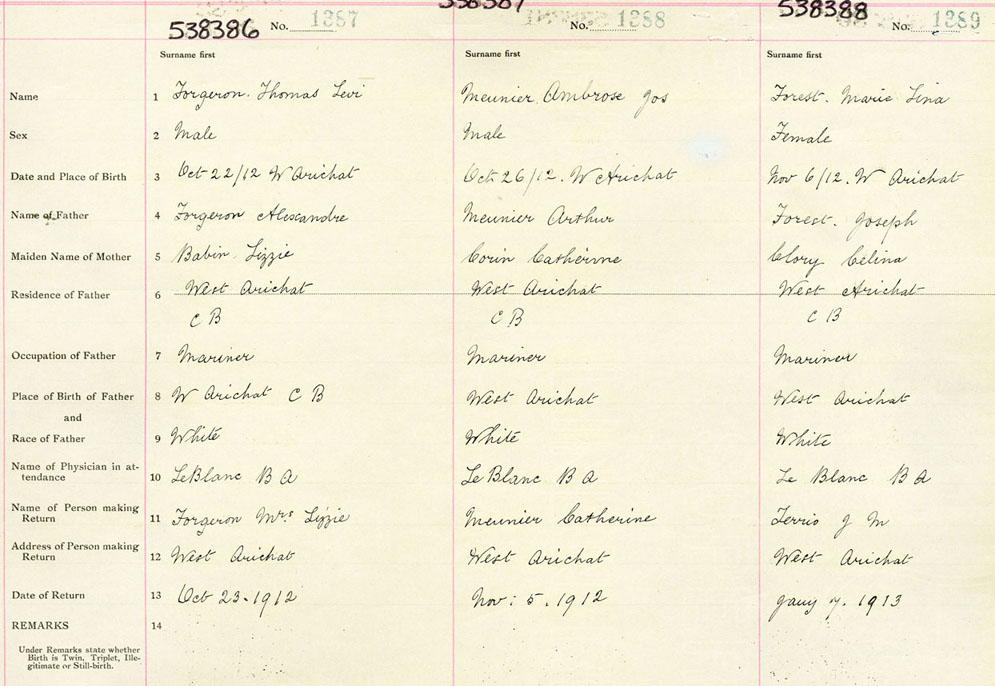 538386 No. 1387 538387 No. 1388 538388 No. 1389
Surname first Surname first Surname first
Name 1 Forgeron. Thomas Levi Meunier. Ambrose Jos Forest. Marie Lina
Sex 2 Male Male Female
Date and Place of Birth 3 Oct 22/12 W Arichat Oct. 26/12. W Arichat Nov 6/12. W Arichat
Name of Father 4 Forgeron Alexandre Meunier Arthur Forest. Joseph
Maiden Name of Mother 5 Babin. Lizzie Corin Catherine Clory Celina
Residence of Father 6 West Arichat West Arichat West Arichat
C B C B C B
Occupation of Father 7 Mariner Mariner Mariner
Place of Birth of Father 8 W Arichat C B West Arichat West Arichat
and
Race of Father 9 White White White
Name of Physician in at-
tendance 10 LeBlanc B A Le Blanc B A Le Blanc B A
Name of Person making
Return 11 Forgeron Mrs Lizzie Meunier Catherine Terrio J M
Address of Person making
Return 12 West Arichat West Arichat West Arichat
Date of Return 13 Oct 23.1912 Nov: 5.1912 Jany 7. 1913
REMARKS 14
Under Remarks state whether
Birth is Twin, Triplet, Ille-
gitimate or Still-birth.